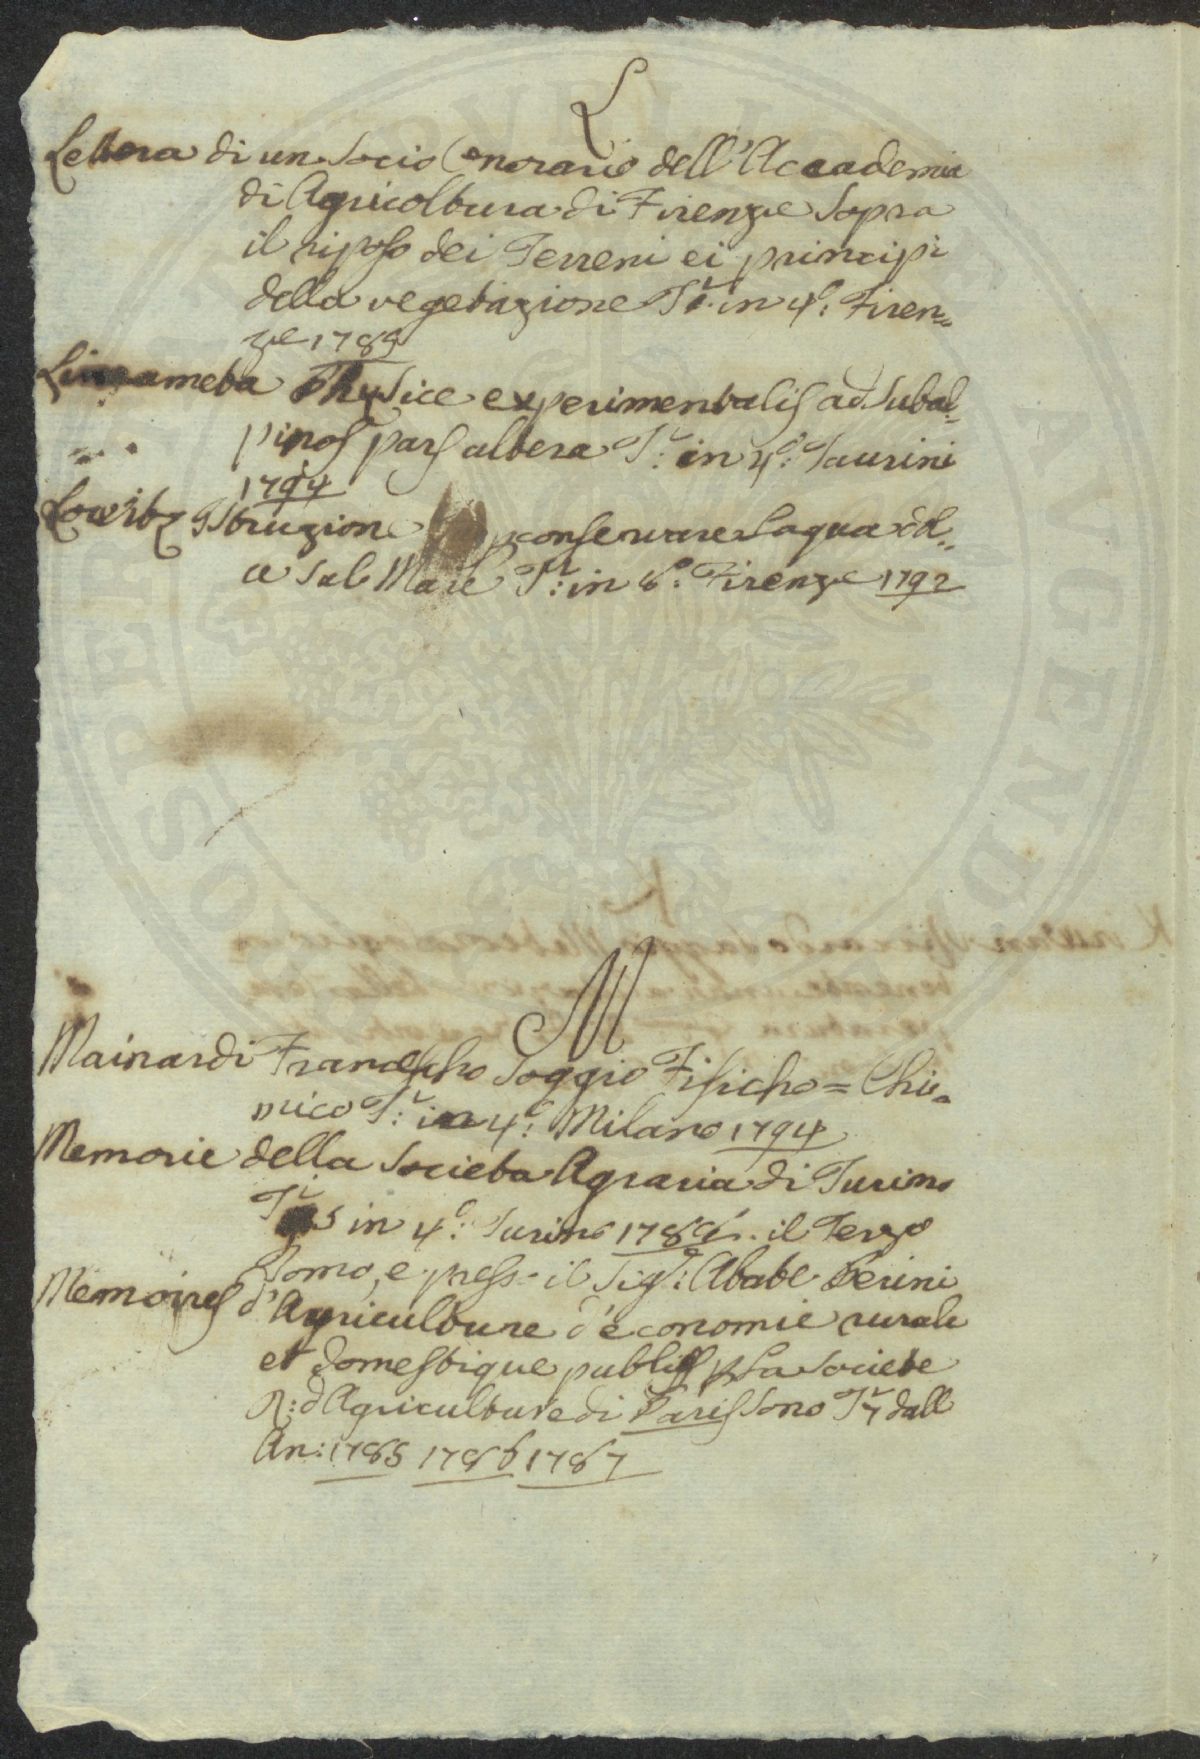 L
Lettera di un Socio Onorario dell'Accademia
di Agricoltura di Firenze Sopra
il riposo dei Terreni ei principi
della vegetazione Tº: in 4º: Firen=
ze 1789
Lineameta Physice experimentalis ad Subal=
pinos pars altera Tº: in 4º: Taurini
1794
Lowitz Istruzione conservare l'aqua
Mare Tº: in 8º: Firenze 1792
M
Mainardi Francescho Soggio Fisicho = Chi=
mico Tº: in 4º: Milano 1794
Memorie della Societa Agraria di Turino
in 4º: Turino il Terzo
Tomo, e press= il Sigº: Abate
Memoires d'Agriculture d'économie rurale
et domestique la Societe
R: d'Agriculture di Paris Sono Tº 7 dall
An: 1785 1786 1787